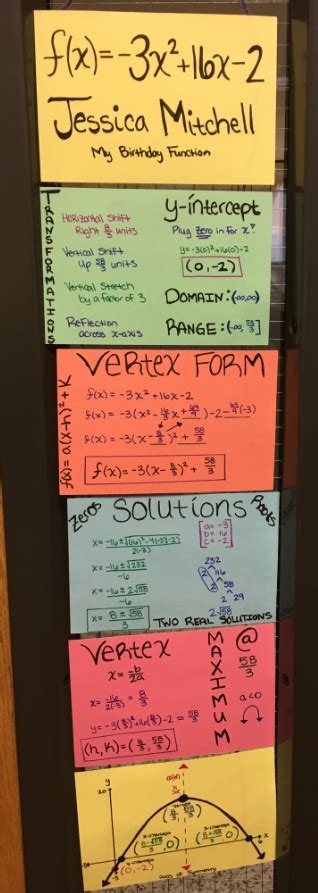 f(x)=-3x²+16x-2
Jessica Mitchell
My Birthday Function
TRANSFORMATIONS
Horizontal Shift
Right 8/3 units
Vertical Shift
Up 58/3 units
Vertical Stretch
by a factor of 3
Reflection
across x-axis
y-intercept
Plug zero in for x!
y=-3(0)²+16(0)-2
(0,-2)
DOMAIN: (-∞,∞)
RANGE: (-∞, 58/3]
f(x)=a(x-h)²+K
VERTEX FORM
f(x) = -3x²+16x-2
f(x) = -3(x²-16/3x+64/9)-2-64/9(-3)
f(x) = -3(x-8/3)²+58/3
f(x)=-3(x-8/3)²+58/3
Zeros
Solutions
Roots
x=-16±√(16)²-4(-3)(-2)
2(-3)
x=-16±√232
-6
x=-16±2√58
-6
x= 8±√58
3
a=-3
b=16
c=-2
232
2 116
2 58
2 29
2√58
TWO REAL SOLUTIONS
Vertex
x=-b
2a
x=-16/2(-3)=8/3
y=-3(8/3)²+16(8/3)-2=58/3
(h,K)=(8/3, 58/3)
MAXIMUM
@
58/3
a<0
y
20
vertex
(8/3, 58/3)
x-intercept
x-intercept
(0,-2)
6
x
axis of symmetry